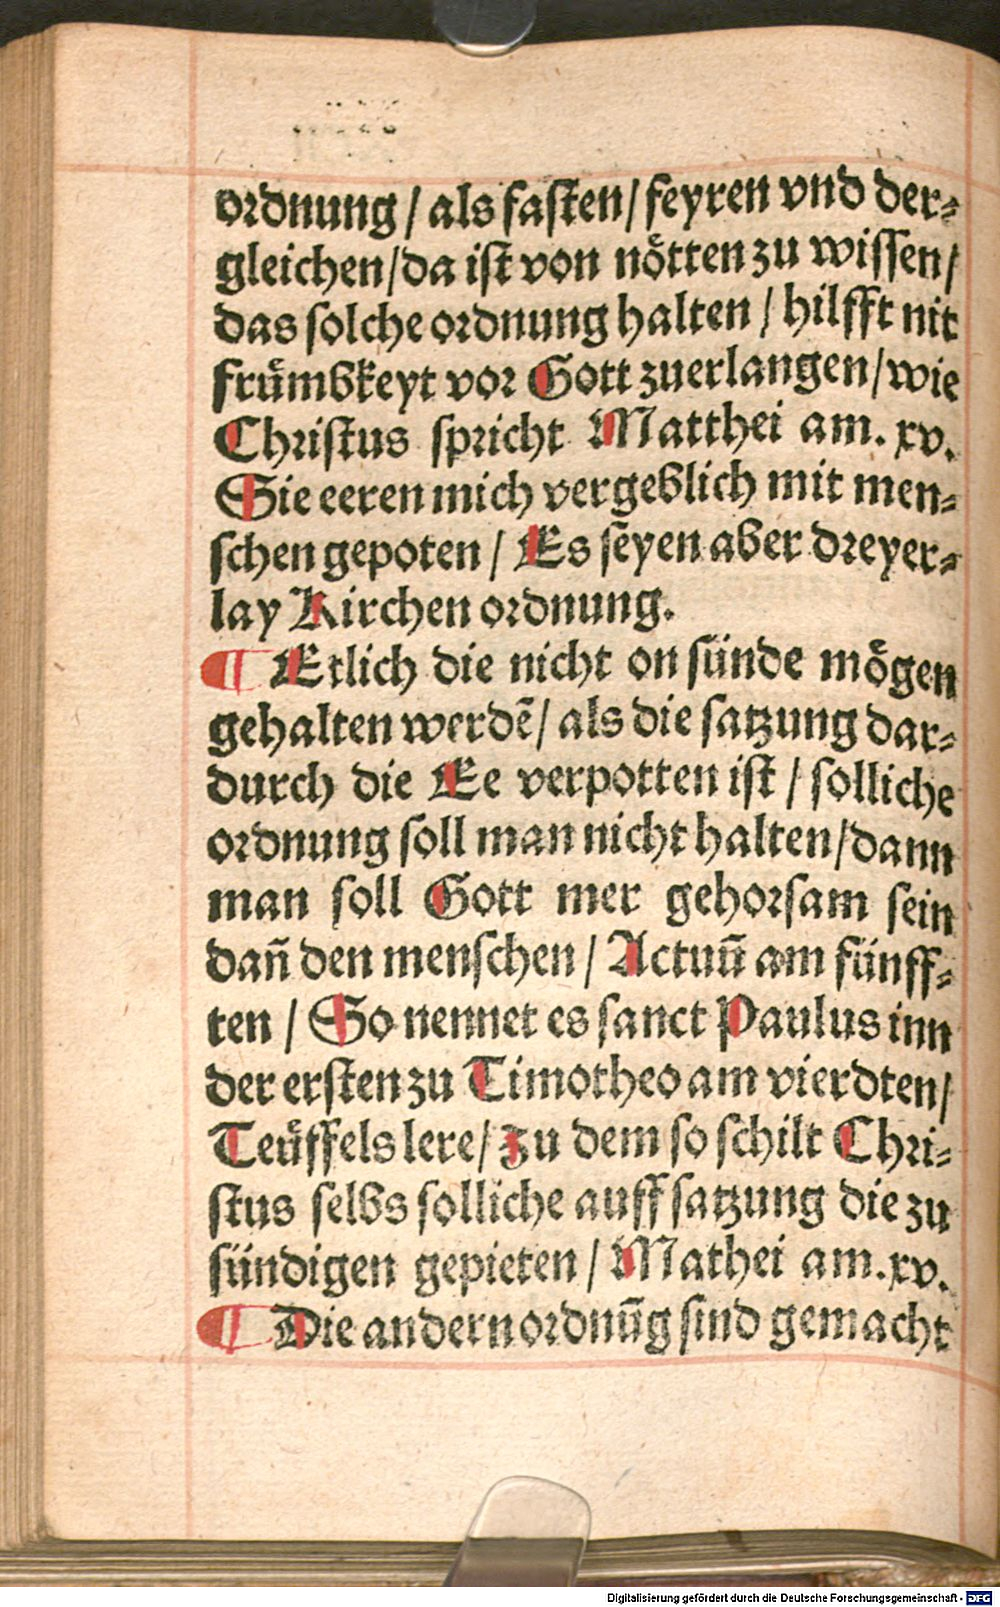 ordnung / als fasten / feyren vnd der⸗
gleichen / da ist von nötten zu wissen /
das solche ordnung halten / hilfft nit
frümbkeyt vor Gott zuerlangen / wie
Christus spricht Matthei am. xv.
Sie eeren mich vergeblich mit men⸗
schen gepoten / Es seyen aber dreyer⸗
lay Kirchen ordnung.
¶ Etlich die nicht on sünde mögen
gehalten werdẽ / als die satzung dar⸗
durch die Ee verpotten ist / solliche
ordnung soll man nicht halten / dann
man soll Gott mer gehorsam sein
dañ den menschen / Actuũ am fünff⸗
ten / So nennet es sanct Paulus inn
der ersten zu Timotheo am vierdten /
Teüffels lere / zu dem so schilt Chri⸗
stus selbs solliche auffsatzung die zu
sündigen gepieten / Mathei am. xv.
¶ Die andern ordnũg sind gemacht
Digitalisierung gefördert durch die Deutsche Forschungsgemeinschaft - DFG